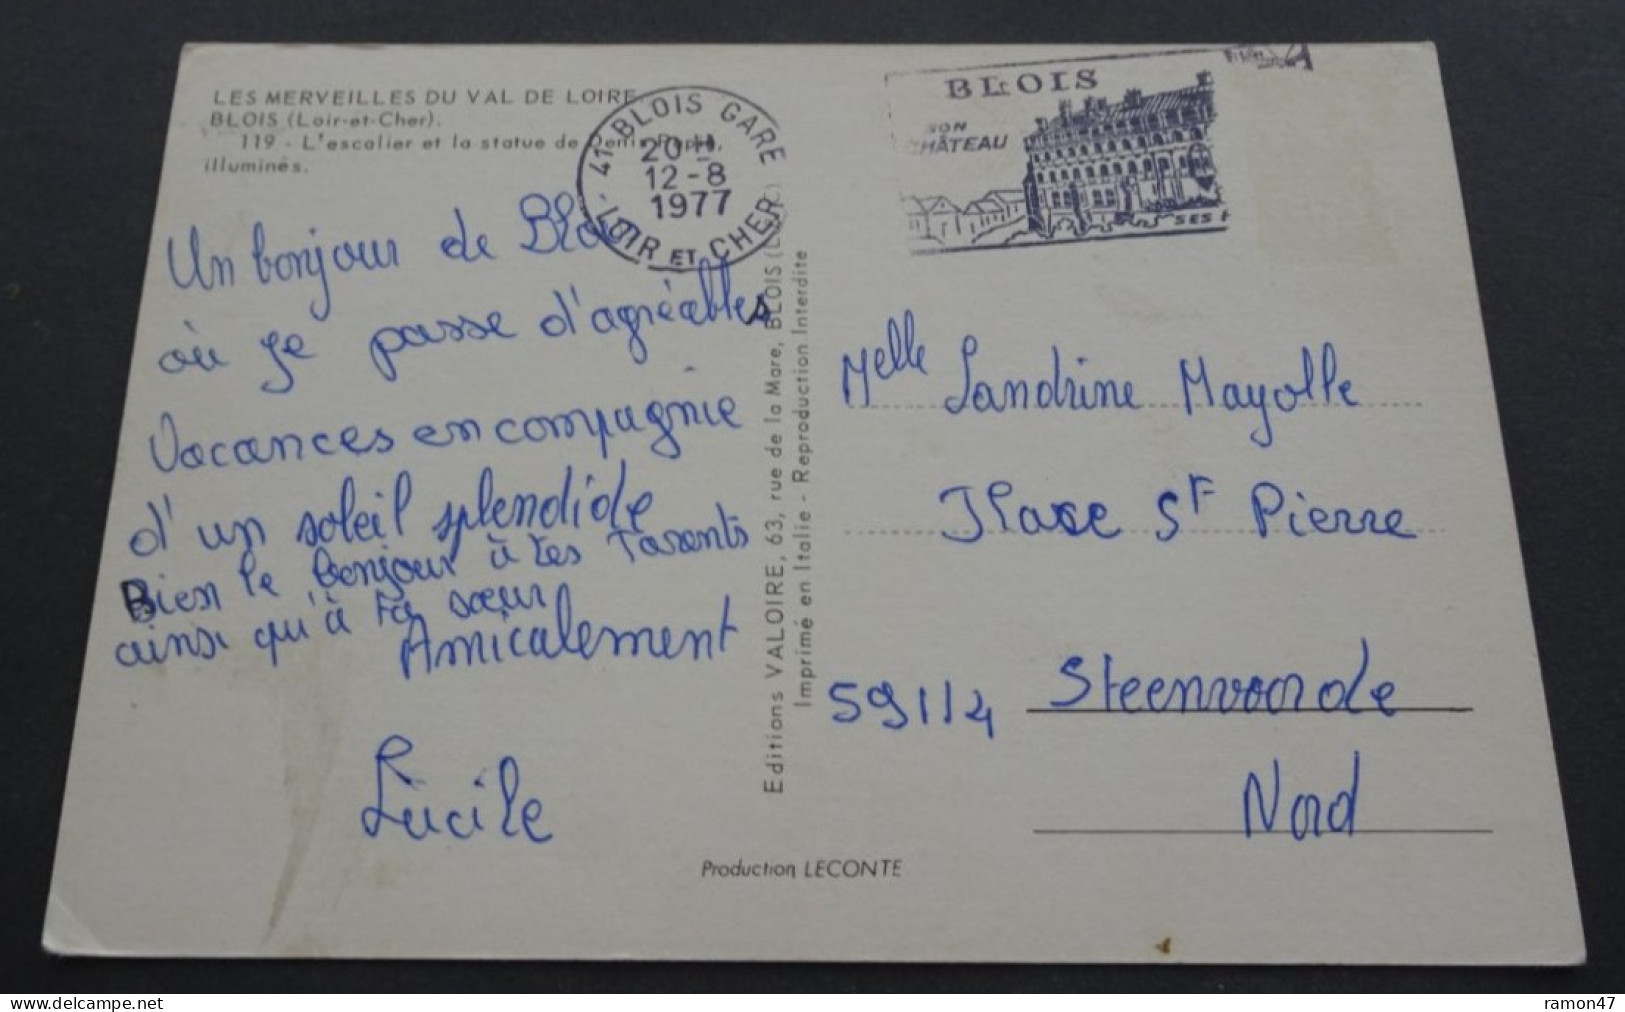 LES MERVEILLES DU VAL DE LOIRE
BLOIS (Loir-et-Cher).
119 - L'escalier et la statue de Denis Papin,
illuminés.
41 BLOIS GARE
20 H
12-8
1977
LOIR ET CHER
BLOIS
SON
CHÂTEAU
SES
Un bonjour de Blois
où je passe d'agréables
Vacances en compagnie
d'un soleil splendide
Bien le bonjour à tes Parents
ainsi qu'à ta sœur
Amicalement
Lucile
Editions VALOIRE, 63, rue de la Mare, BLOIS
Imprimé en Italie - Reproduction Interdite
Melle Sandrine Mayolle
Place St Pierre
59114 Steenvoorde
Nord
Production LECONTE
www.delcampe.net
ramon47